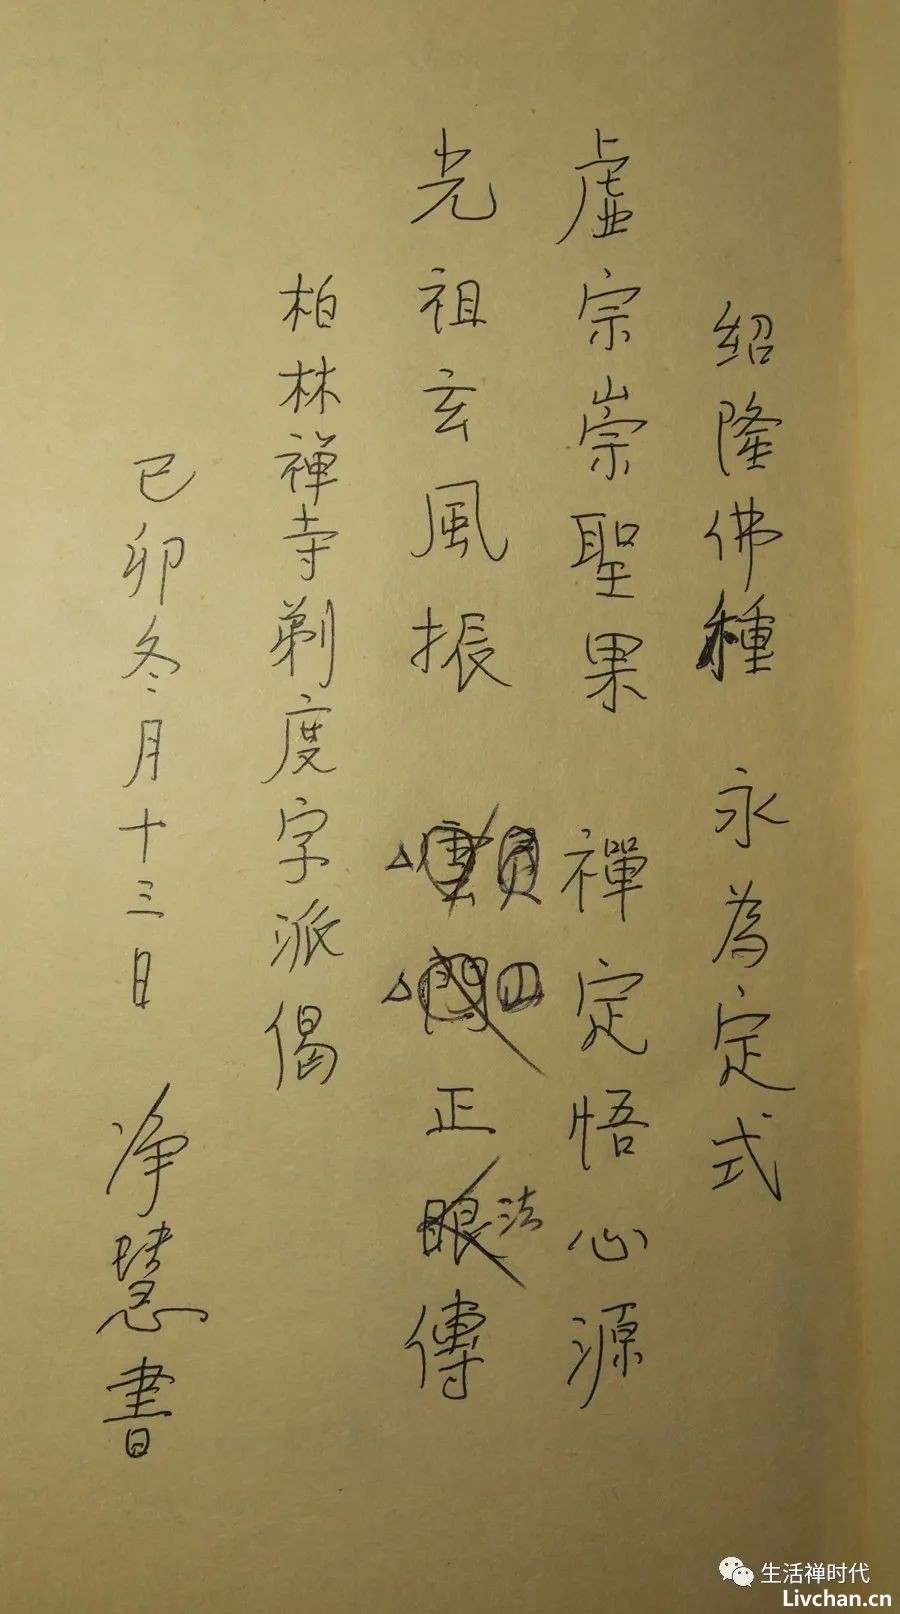 绍隆佛種 永為定式
虚宗崇聖果 禪定悟心源
光祖玄風振 雲門正眼法傳
柏林禅寺剃度字派偈
己卯冬月十三日 净慧書
生活禅时代
Livchan.cn